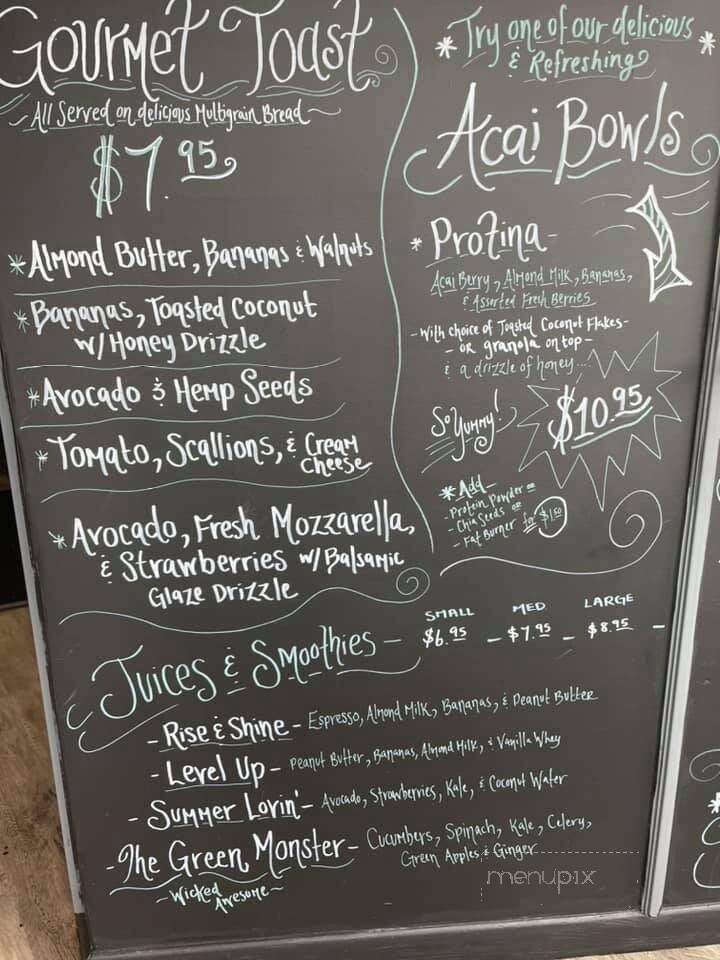 Gourmet Toast
All Served on delicious Multigrain Bread
$7.95
* Almond Butter, Bananas & Walnuts
* Bananas, Toasted Coconut
w/ Honey Drizzle
* Avocado & Hemp Seeds
* Tomato, Scallions, & Cream
Cheese
* Avocado, Fresh Mozzarella,
& Strawberries w/ Balsamic
Glaze Drizzle
* Try one of our delicious *
& Refreshing
Acai Bowls
* Profina -
Acai Berry, Almond Milk, Bananas,
& Assorted Fresh Berries
- With choice of Toasted Coconut Flakes -
- or granola on top -
& a drizzle of honey...
So Yummy!
$10.95
* Add -
- Protein Powder or
- Chia Seeds or
- Fat Burner for $1.50
SMALL MED LARGE
$6.95 - $7.95 - $8.95 -
Juices & Smoothies -
- Rise & Shine - Espresso, Almond Milk, Bananas, & Peanut Butter
- Level Up - Peanut Butter, Bananas, Almond Milk, & Vanilla Whey
- Summer Lovin' - Avocado, Strawberries, Kale, & Coconut Water
- The Green Monster - Cucumbers, Spinach, Kale, Celery,
Green Apples, & Ginger
~ Wicked
Awesome ~
menupix